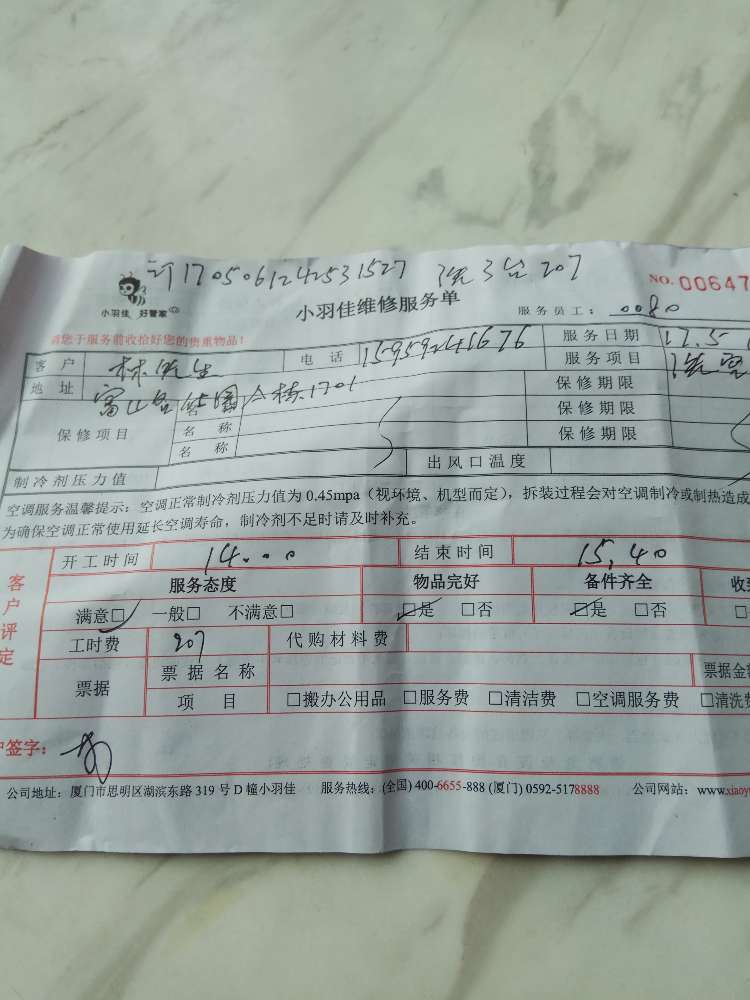 订170506124253 1527 洗3台207
小羽佳 好管家
小羽佳维修服务单
NO. 00647
服务员工: 0080
请您于服务前收拾好您的贵重物品!
客户 林先生 电话 15959241676 服务日期 17.5
地址 富山名仕园 栋1701 服务项目 洗空
保修项目 名称 保修期限
名称 保修期限
保修期限
制冷剂压力值 出风口温度
空调服务温馨提示:空调正常制冷剂压力值为 0.45mpa(视环境、机型而定),拆装过程会对空调制冷或制热造成
为确保空调正常使用延长空调寿命,制冷剂不足时请及时补充。
客户评定
开工时间 14.00 结束时间 15,40
服务态度 物品完好 备件齐全 收
满意□ 一般□ 不满意□ □是 □否 □是 □否 □
工时费 207 代购材料费
票据 票据名称 票据金
项目 □搬办公用品 □服务费 □清洁费 □空调服务费 □清洗费
签字:
公司地址:厦门市思明区湖滨东路 319 号 D 幢小羽佳 服务热线:(全国) 400-6655-888 (厦门) 0592-5178888 公司网站:www.xiaoy